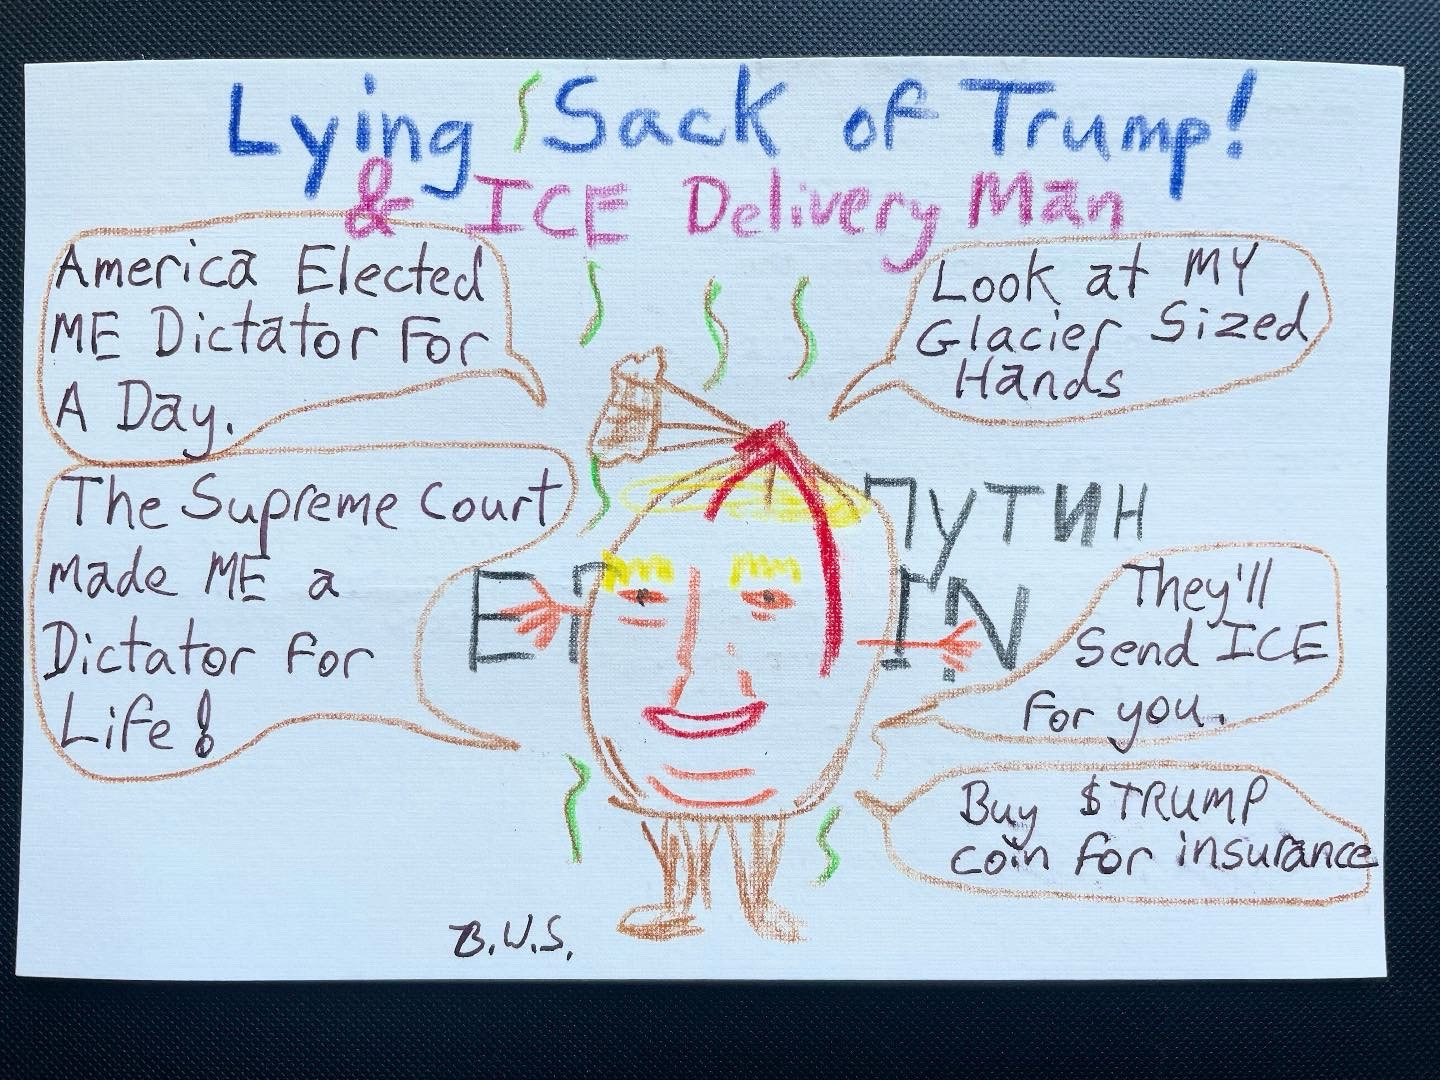 Lying Sack of Trump!
& ICE Delivery Man
America Elected
ME Dictator For
A Day.
Look at MY
Glacier Sized
Hands
The Supreme Court
made ME a
Dictator for
Life!
ПУТИН
They'll
Send ICE
for you.
Buy $TRUMP
coin for insurance
B.W.S.